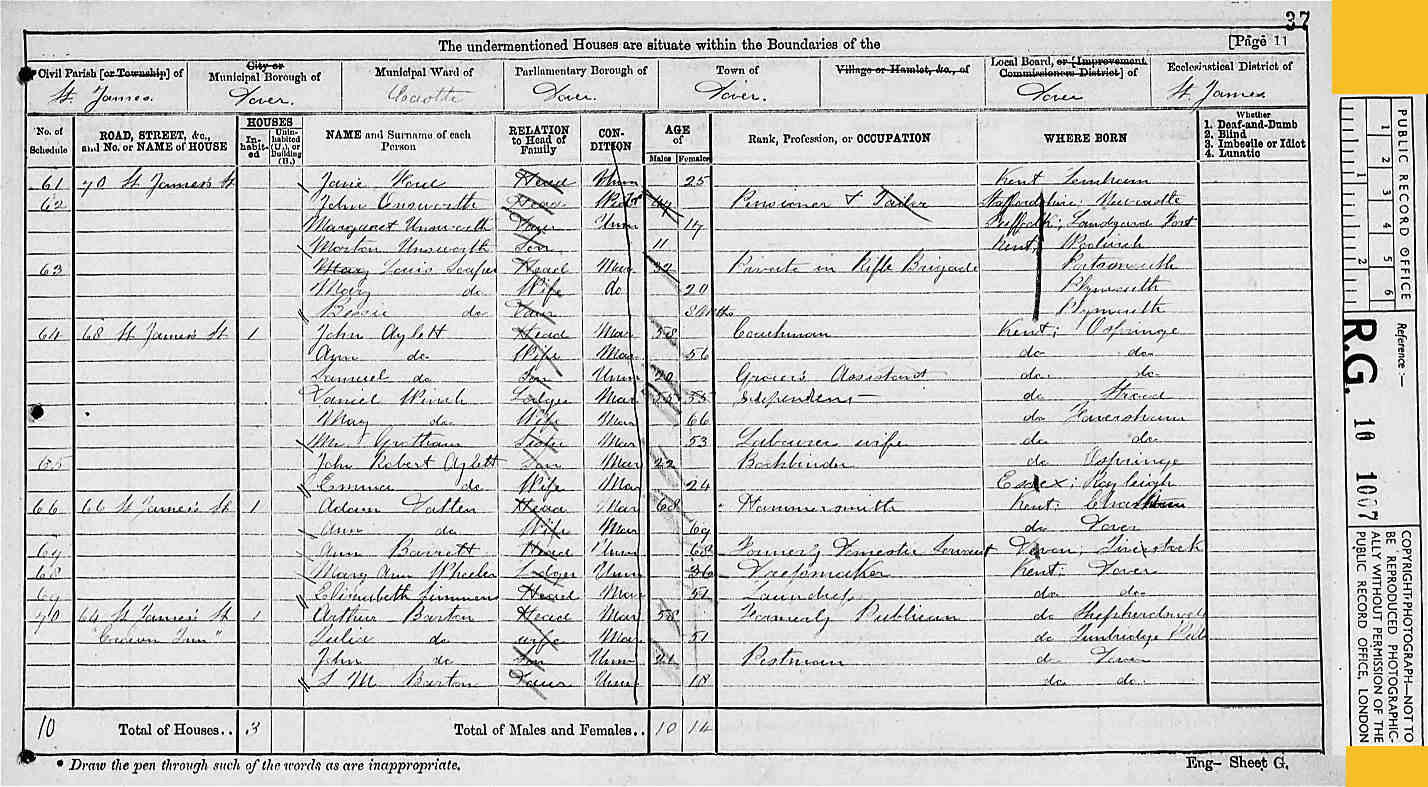 37
The undermentioned Houses are situate within the Boundaries of the [Page 11
Civil Parish [or Township] of City or Municipal Borough of Municipal Ward of Parliamentary Borough of Town of Village or Hamlet, &c., of Local Board, or [Improvement Commissioners District] of Ecclesiastical District of
St. James. Dover. Dover. Dover. Dover St. James.
No. of Schedule ROAD, STREET, &c., and No. or NAME of HOUSE HOUSES In-habit-ed Unin-habited (U.), or Building (B.) NAME and Surname of each Person RELATION to Head of Family CON-DITION AGE of Males Females Rank, Profession, or OCCUPATION WHERE BORN Whether 1. Deaf-and-Dumb 2. Blind 3. Imbecile or Idiot 4. Lunatic
61 70 St James's St Jane Head Unm 25 Kent Lenham
62 John Unsworth Head Pensioner & Tailor Staffordshire; Newcastle
Margaret Unsworth Daur Unm 17 Suffolk; Landguard Fort
Morton Unsworth Son 11 Kent; Woolwich
63 Mary Louis Head Mar 32 Private in Rifle Brigade Portsmouth
Mary do Wife do 20 Plymouth
Bessie do Daur Plymouth
64 68 St James's St 1 John Aylett Head Mar 58 Coachman Kent; Ospringe
Ann do Wife Mar 56 do do
Samuel do Son Unm 20 Grocer's Assistant do do
Daniel Winch Lodger Mar Independent do Strood
Mary do Wife Mar 66 do Faversham
Mar 53 Labourers wife do do
65 John Robert Aylett Son Mar 22 Bookbinder do Ospringe
Emma do Wife Mar 24 Essex; Rayleigh
66 66 St James's St 1 Adam Head Mar 68 Hammersmith Kent; Chatham
Ann do Wife Mar 69 do Dover
67 Ann Barrett Head Unm 68 Formerly Domestic Servant Devon; Tavistock
68 Mary Ann Wheeler Lodger Unm 36 Kent; Dover
69 Elizabeth Simmons Head Mar 51 Laundress do do
70 64 St James's St 1 Arthur Barton Head Mar 58 Formerly Publican do Shepherdswell
"Crown Inn" Julia do wife Mar 51 do Tunbridge
John do Son Unm 21 Postman do Dover
S M Barton Daur Unm 18 do do
10 Total of Houses.. 3 Total of Males and Females.. 10 14
* Draw the pen through such of the words as are inappropriate. Eng- Sheet G.
PUBLIC RECORD OFFICE
1 2 3 4 5 6
1 2
Reference:-
R.G. 10 1007
COPYRIGHT PHOTOGRAPH—NOT TO BE REPRODUCED PHOTOGRAPHIC-ALLY WITHOUT PERMISSION OF THE PUBLIC RECORD OFFICE, LONDON